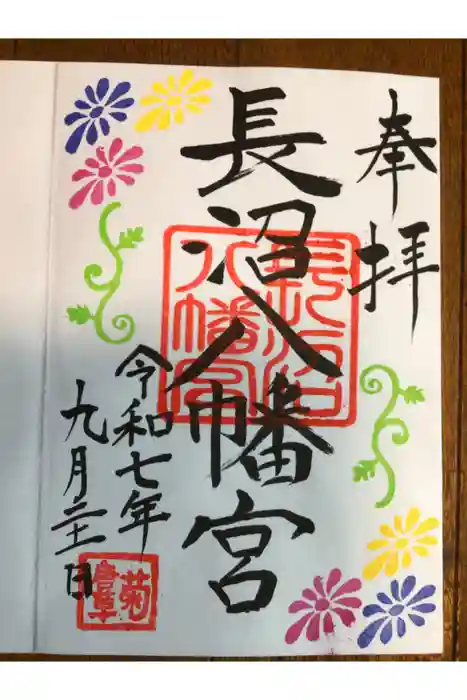 奉拝
長沼八幡宮
八幡宮
令和七年
九月二十一日
菊